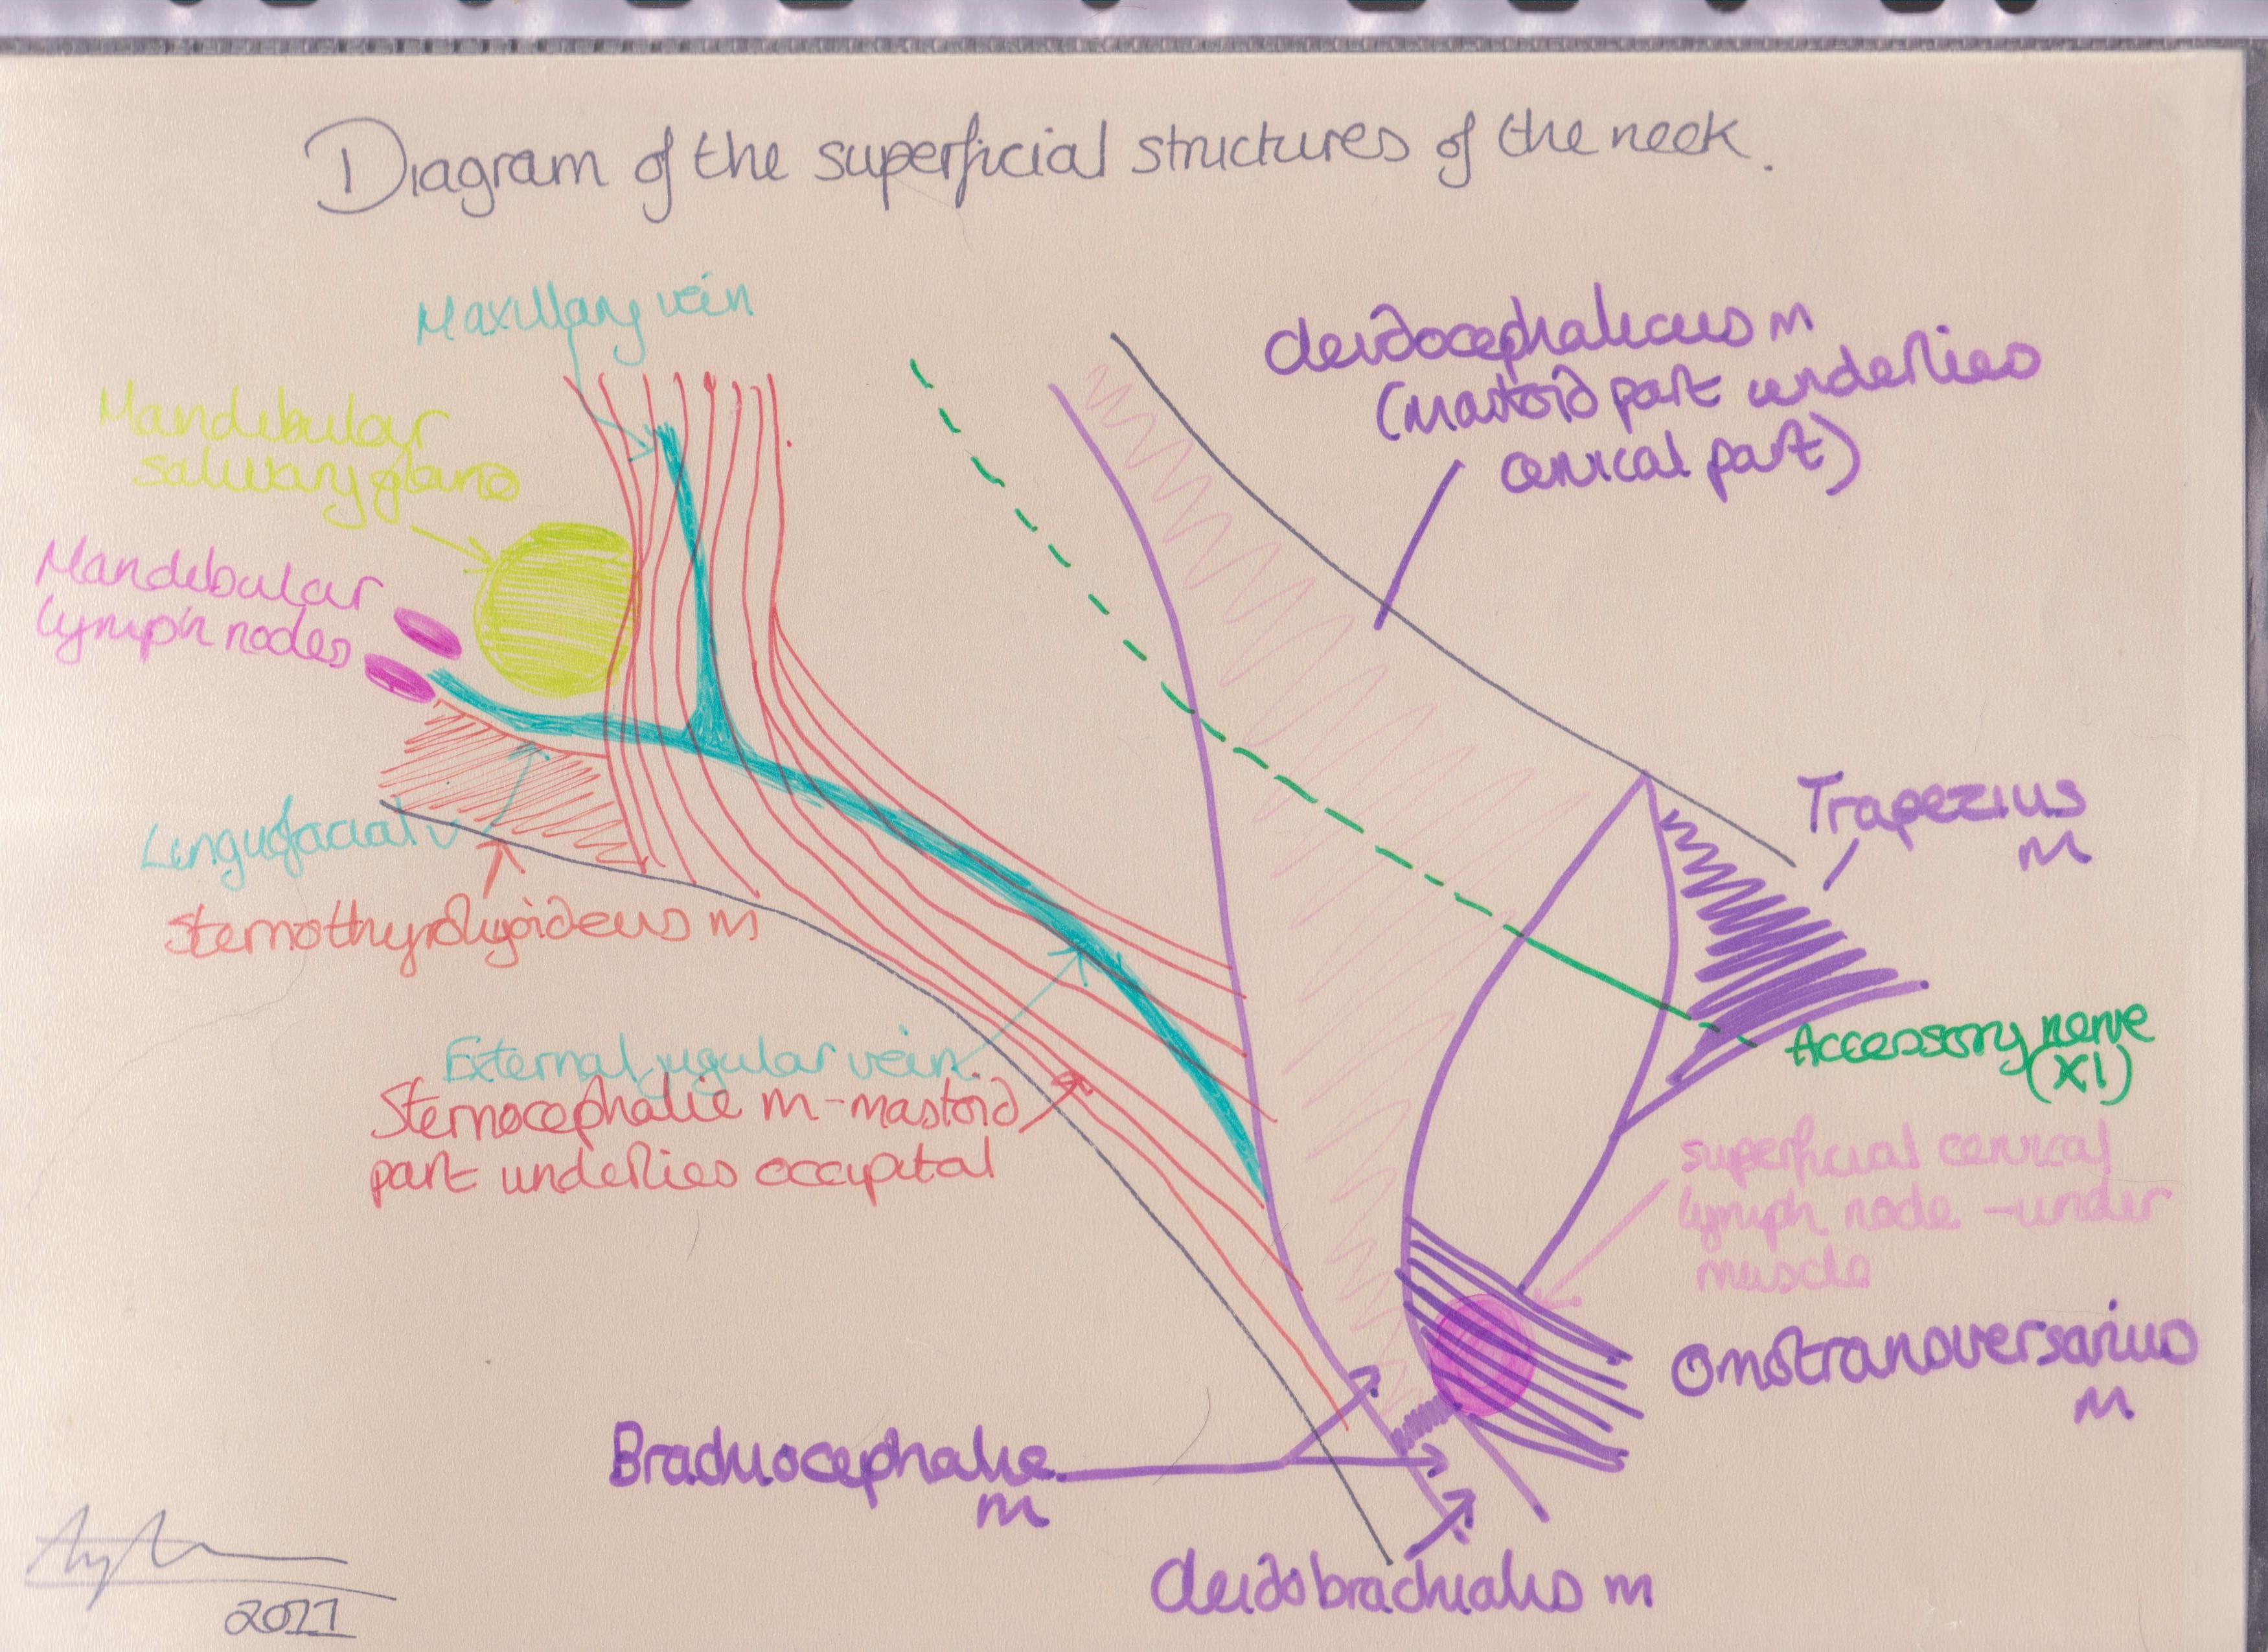 Diagram of the superficial structures of the neck.
Maxillary vein
Mandibular
salivary gland
Mandibular
lymph nodes
Linguofacial v
Sternothyrohyoideus m
External jugular vein
Sternocephalic m - mastoid
part underlies occipital
Cleidocephalicus m
(mastoid part underlies
cervical part)
Trapezius
m
Accessory nerve
(XI)
superficial cervical
lymph node - under
muscle
Omotransversarius
m
Brachiocephalic
m
Cleidobrachialis m
2011